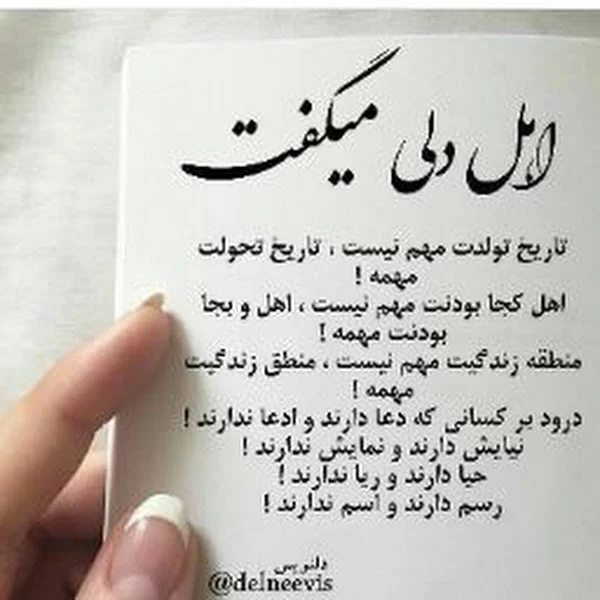 اهل دلی میگفت
تاریخ تولدت مهم نیست ، تاریخ تحولت
مهمه !
اهل کجا بودنت مهم نیست ، اهل و بجا
بودنت مهمه !
منطقه زندگیت مهم نیست ، منطق زندگیت
مهمه !
درود بر کسانی که دعا دارند و ادعا ندارند !
نیایش دارند و نمایش ندارند !
حیا دارند و ریا ندارند !
رسم دارند و اسم ندارند !
دلنویس
@delneevis